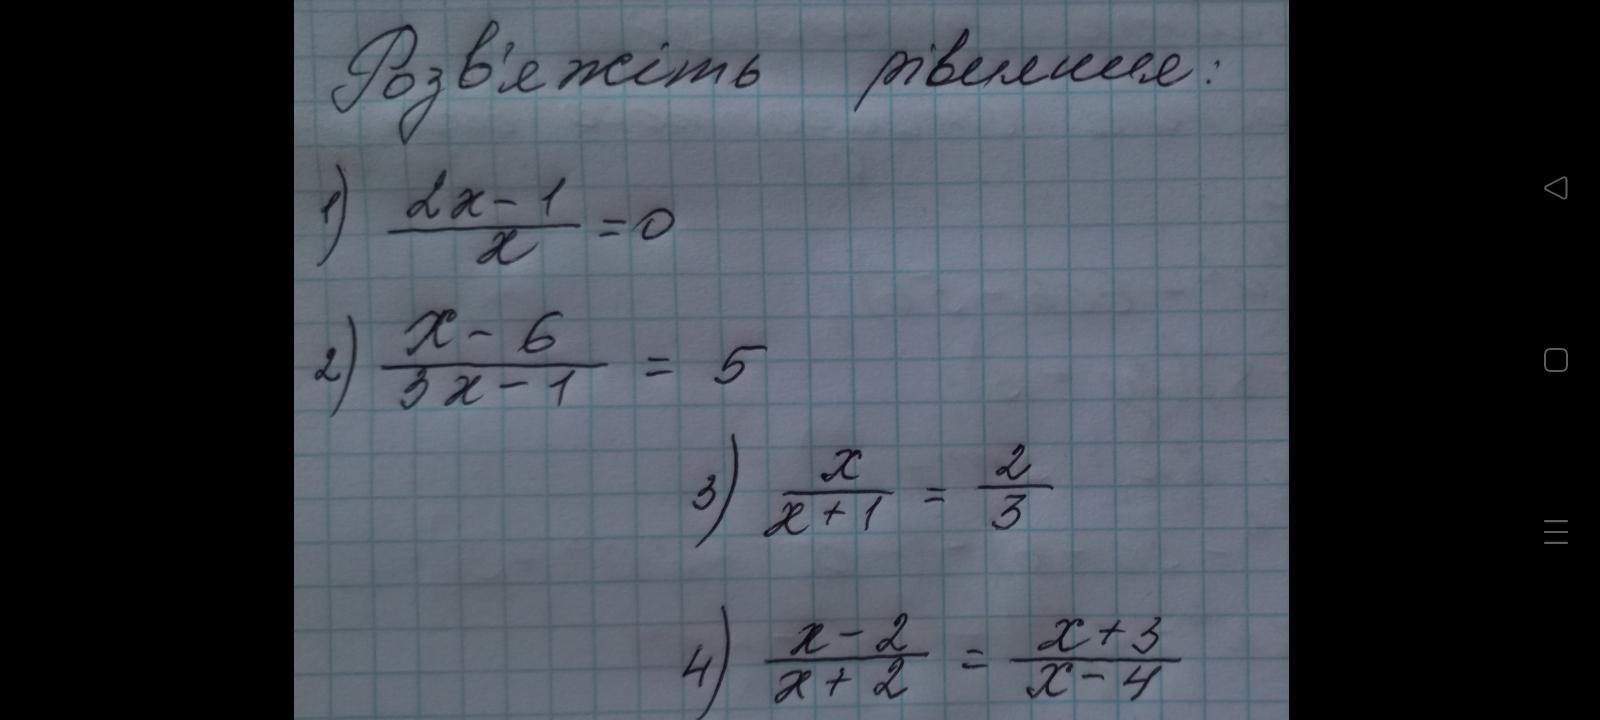 Розв'яжіть рівняння:
1) (2x-1)/x =0
2) (x-6)/(3x-1) = 5
3) x/(x+1) = 2/3
4) (x-2)/(x+2) = (x+3)/(x-4)